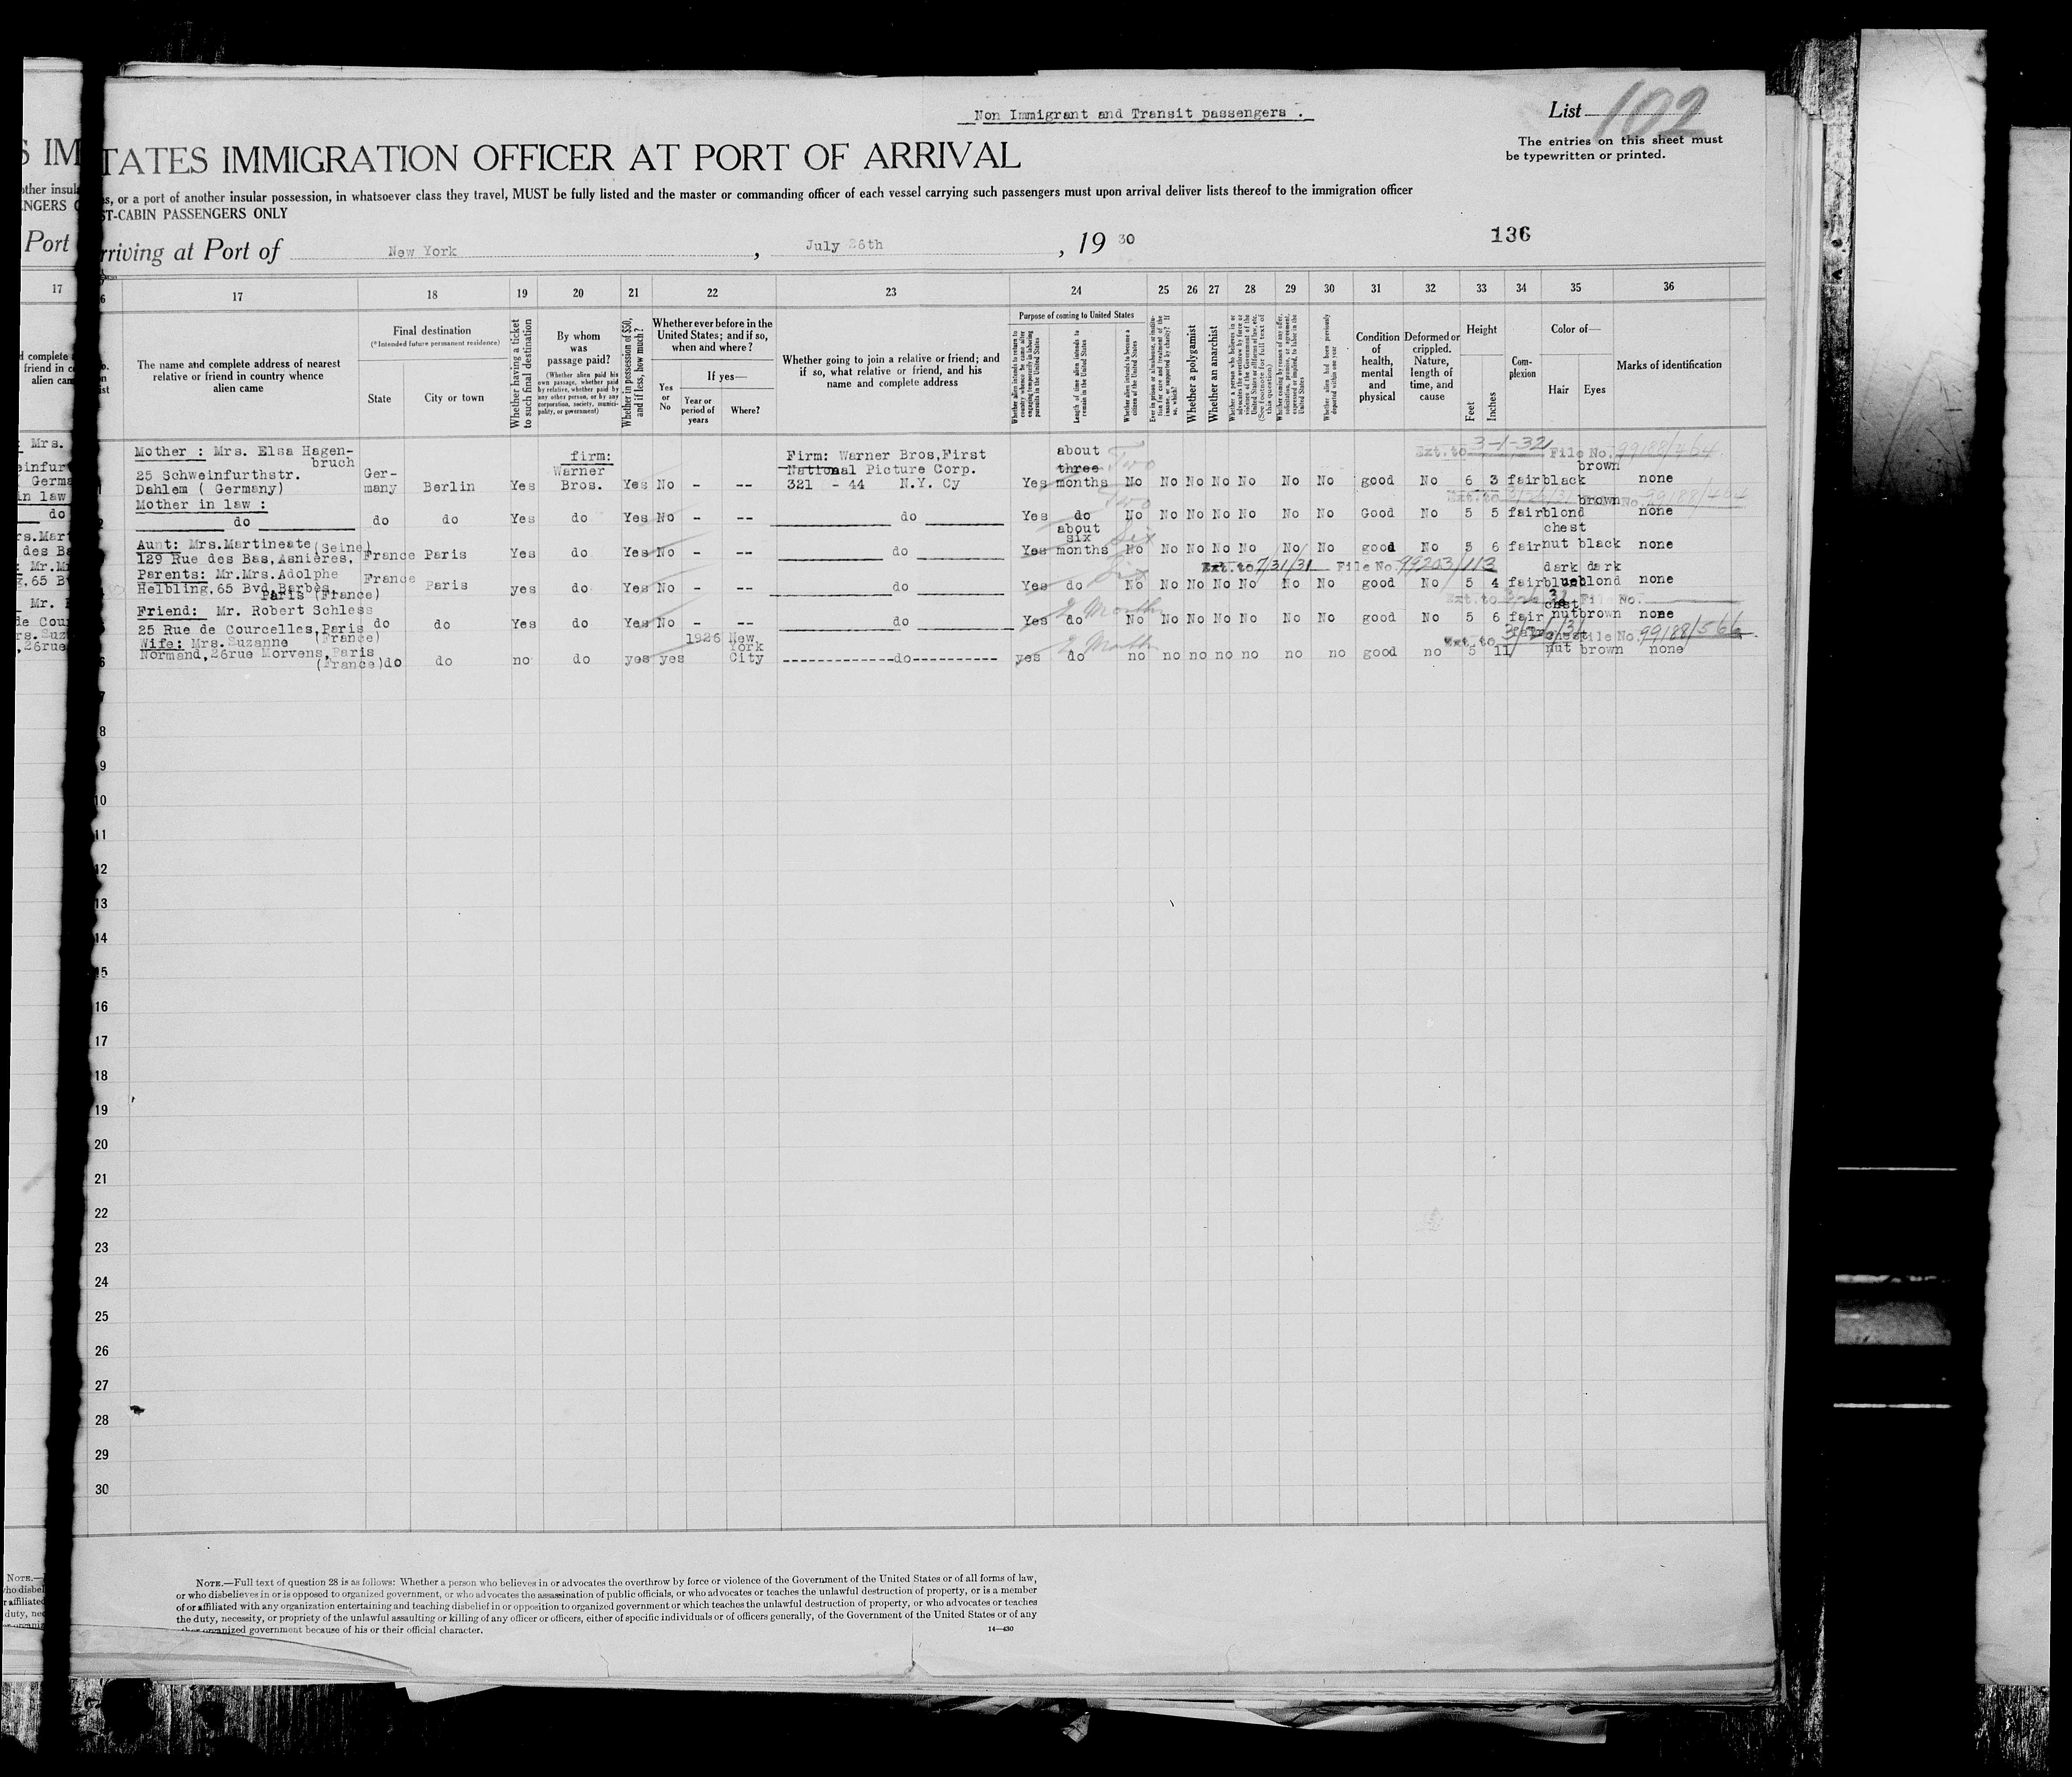 Non Immigrant and Transit passengers .
List 102
The entries on this sheet must
be typewritten or printed.
TATES IMMIGRATION OFFICER AT PORT OF ARRIVAL
s, or a port of another insular possession, in whatsoever class they travel, MUST be fully listed and the master or commanding officer of each vessel carrying such passengers must upon arrival deliver lists thereof to the immigration officer
ST-CABIN PASSENGERS ONLY
136
rriving at Port of New York , July 26th , 19 30
17 18 19 20 21 22 23 24 25 26 27 28 29 30 31 32 33 34 35 36
The name and complete address of nearest
relative or friend in country whence
alien came
Final destination
(*Intended future permanent residence)
State
City or town
Whether having a ticket
to such final destination
By whom
was
passage paid?
(Whether alien paid his
own passage, whether paid
by relative, whether paid by
any other person, or by any
corporation, society, munici-
pality, or government)
Whether in possession of $50,
and if less, how much?
Whether ever before in the
United States; and if so,
when and where?
Yes
or
No
If yes—
Year or
period of
years
Where?
Whether going to join a relative or friend; and
if so, what relative or friend, and his
name and complete address
Purpose of coming to United States
Whether alien intends to return to
country whence he came after
engaging temporarily in laboring
pursuits in the United States
Length of time alien intends to
remain in the United States
Whether alien intends to become a
citizen of the United States
Whether a polygamist
Whether an anarchist
Whether alien had been previously
deported within one year
Condition
of
health,
mental
and
physical
Deformed or
crippled.
Nature,
length of
time, and
cause
Height
Feet
Inches
Com-
plexion
Color of—
Hair
Eyes
Marks of identification
Ext. to 3-1-32 File No. 99188/464
Mother : Mrs. Elsa Hagen-
bruch
25 Schweinfurthstr.
Dahlem ( Germany)
Ger-
many Berlin Yes
firm:
Warner
Bros. Yes No - --
Firm: Warner Bros,First
National Picture Corp.
321 - 44 N.Y. Cy
Yes about
three Two
months No No No No No No No good No 6 3 fair black brown none
Mother in law :
do do do Yes do Yes No - -- do Yes do Two No No No No No No No Good No 5 5 fair blond brown none
Aunt: Mrs.Martineate (Seine)
129 Rue des Bas,Asnières,
France Paris Yes do Yes No - -- do Yes about
six Six
months No No No No No No No good No 5 6 fair chest
nut black none
Ext. to 7/31/31 File No. 99203/113
Parents: Mr.Mrs.Adolphe
Helbling,65 Bvd.Barbès
Paris (France)
France Paris yes do Yes No - -- do Yes do Six No No No No No No No good No 5 4 fair dark dark
blond none
Ext. to File No.
Friend: Mr. Robert Schless
25 Rue de Courcelles,Paris
(France)
do do Yes do Yes No - -- do Yes do 2 Months No No No No No No No good No 5 6 fair chest
nut brown none
Ext. to 3/26/31 File No. 99188/566
Wife: Mrs. Suzanne
Normand,26rue Morvens,Paris
(France)
do do no do yes yes 1926 New
York
City do yes do 2 Months no no no no no no no good no 5 11 fair chest
nut brown none
7
8
9
10
11
12
13
14
15
16
17
18
19
20
21
22
23
24
25
26
27
28
29
30
NOTE.—Full text of question 28 is as follows: Whether a person who believes in or advocates the overthrow by force or violence of the Government of the United States or of all forms of law,
or who disbelieves in or is opposed to organized government, or who advocates the assassination of public officials, or who advocates or teaches the unlawful destruction of property, or is a member
of or affiliated with any organization entertaining and teaching disbelief in or opposition to organized government or which teaches the unlawful destruction of property, or who advocates or teaches
the duty, necessity, or propriety of the unlawful assaulting or killing of any officer or officers, either of specific individuals or of officers generally, of the Government of the United States or of any
other organized government because of his or their official character.
14—430